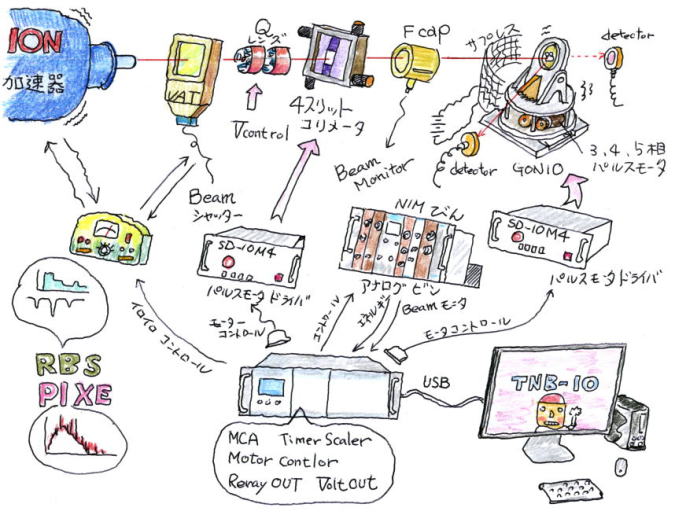 ION
加速器
VAT
Q
レンズ
Vcontrol
4スリット
コリメータ
Fcap
サプレス
detector
detector
GONIO
3,4,5相
パルスモータ
Beam
シャッター
Beam
Monitor
SD-10M4
パルスモータドライバ
NIMびん
アナログビン
SD-10M4
パルスモータドライバ
イロイロコントロール
モーター
コントロール
コントロール
エネルギー
Beamモニタ
モータコントロール
RBS
PIXE
USB
TNB-10
MCA Timer Scaler
Motor contlor
Reray OUT Volt OUT